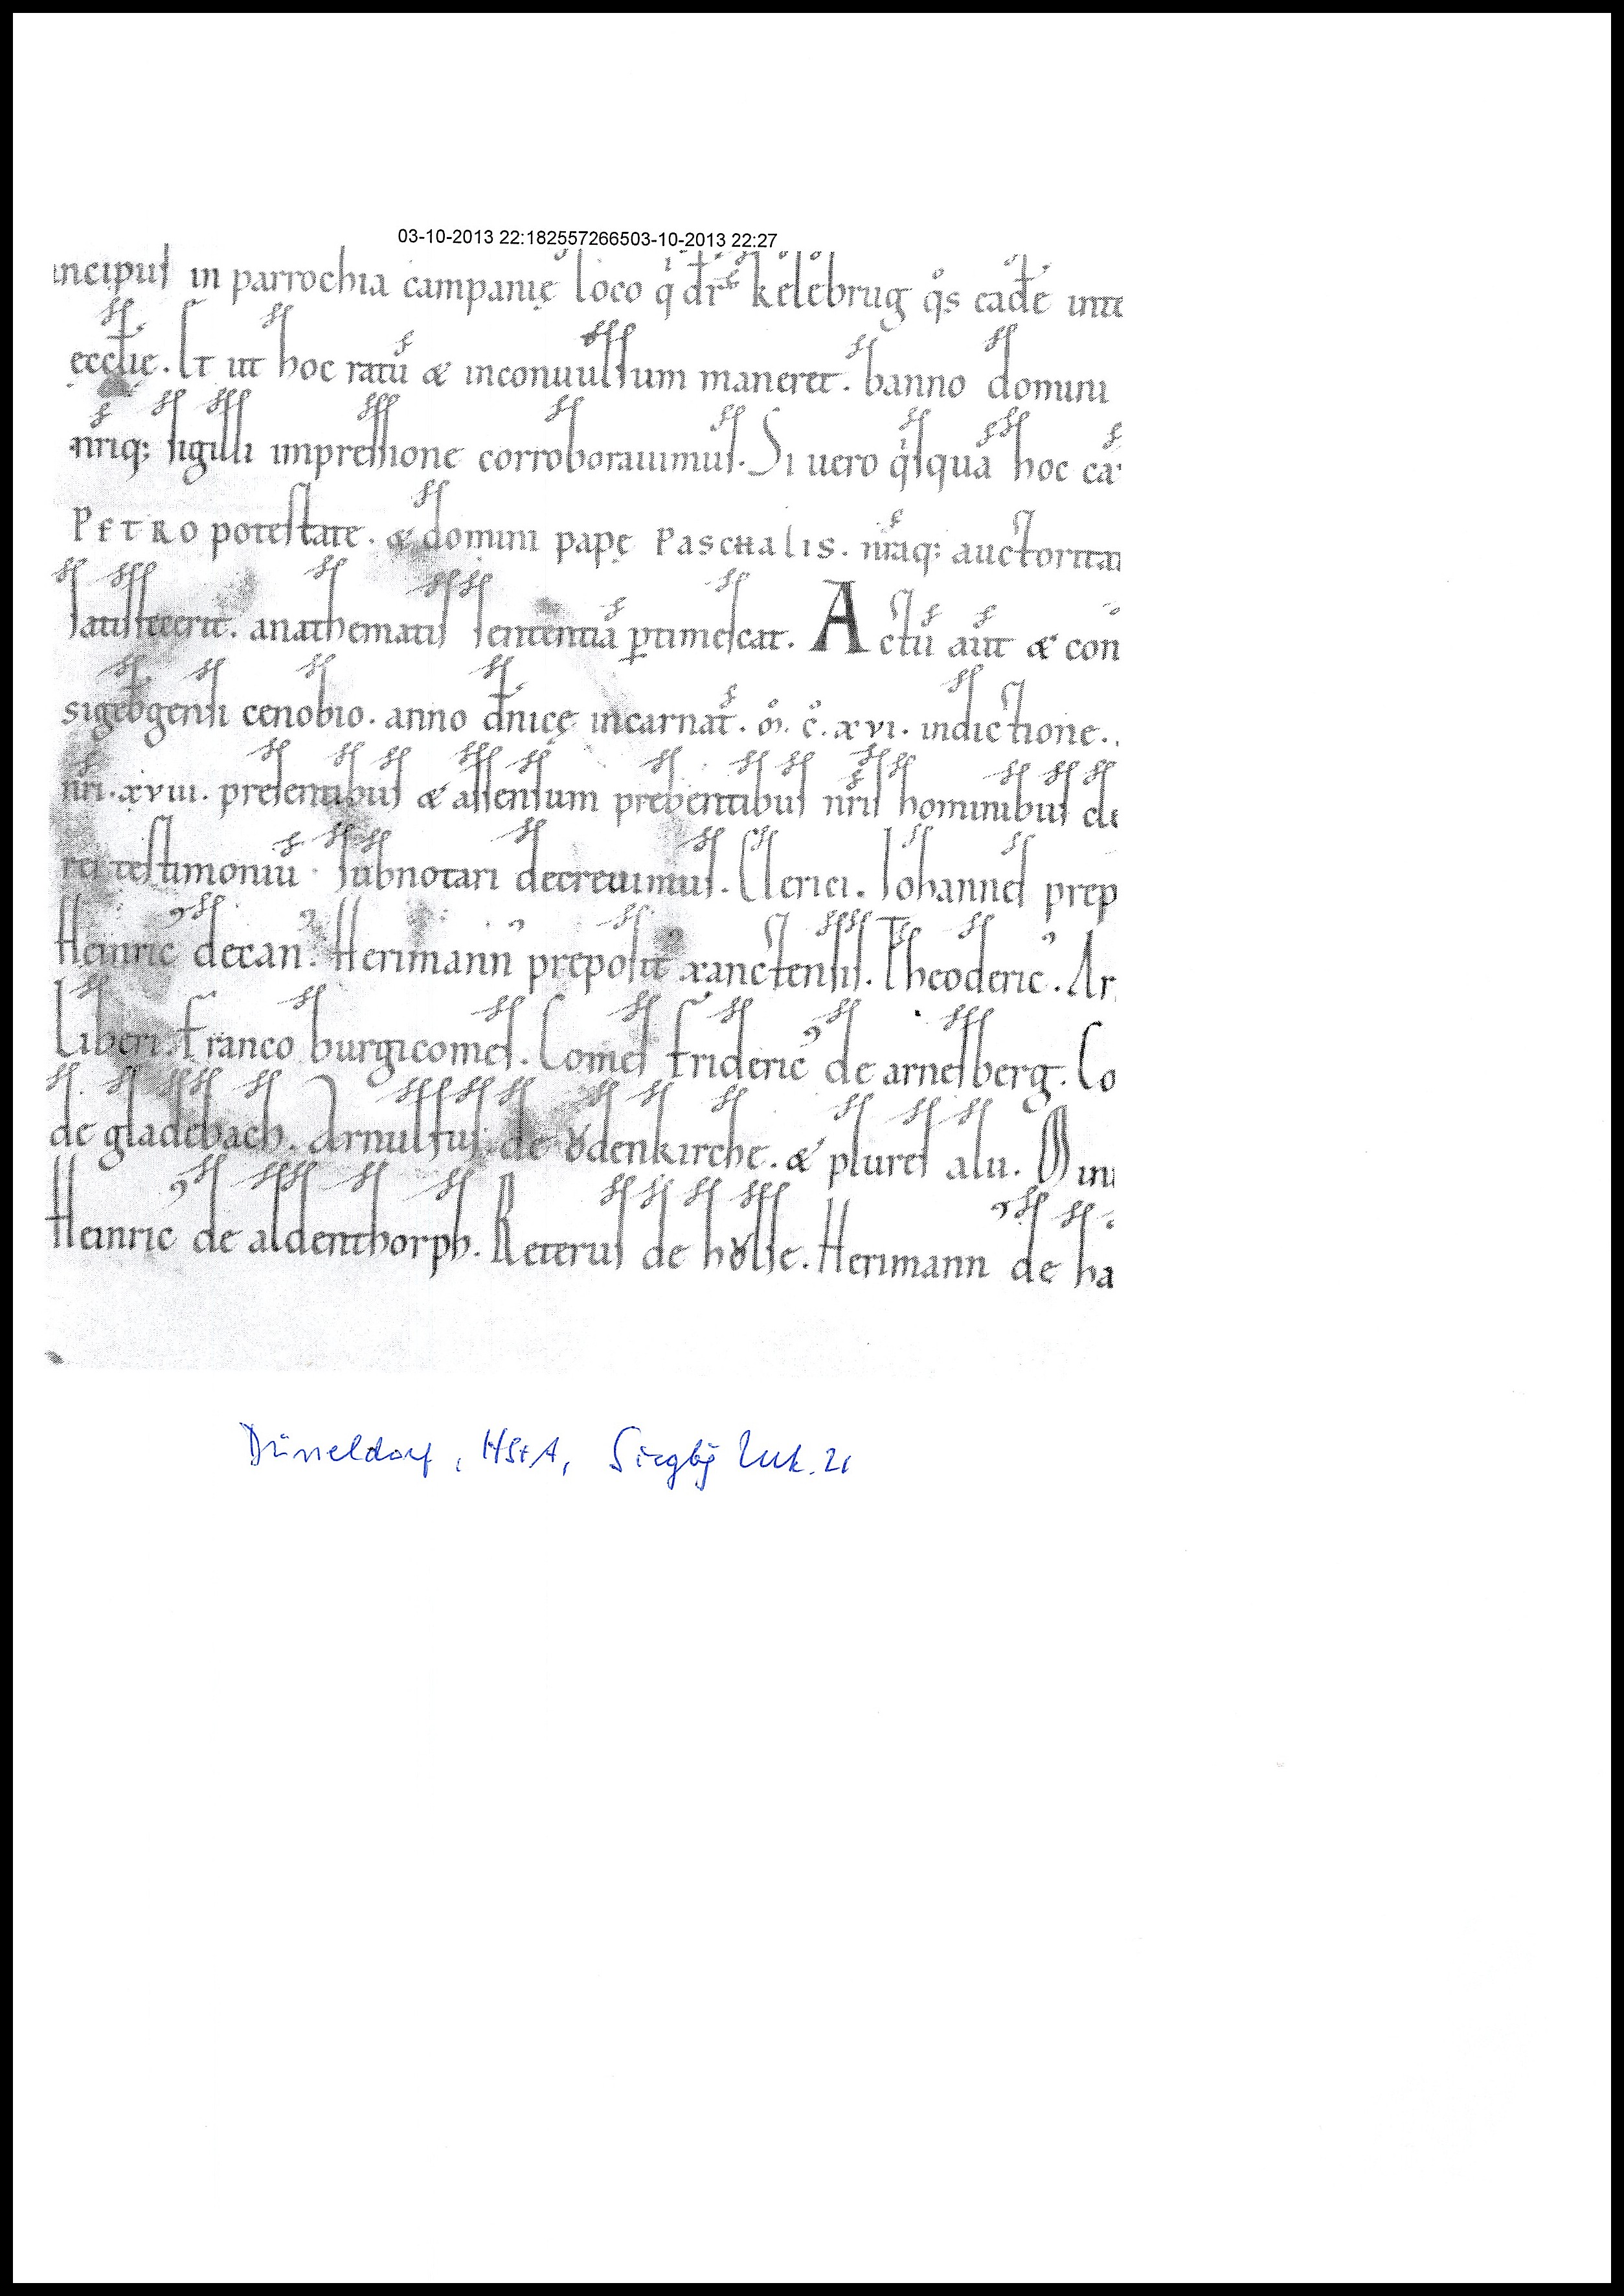 03-10-2013 22:182557266503-10-2013 22:27
ncipuſ in parrochia campanię loco q̇ dr̄ kelebrug q̊s eadē inte
ęcctię. Et ut hoc ratū & inconuulſum maneret. banno domini
nr̄iq; ſigilli impreſſione corroborauimuſ. Si uero q̇ſquā hoc ca
PETRO poteſtate. & domini papę PASCHALIS. nr̄aq; auctoritat
ſatiſfecerit. anathematiſ ſententiā ꝑtimeſcat. Actū aūt & con
sigeb̄genſi cenobio. anno dn̄icę incarnat̄. m̊. c̊. xvi. indictione.
nr̄i. xviii. preſentibuſ & aſſenſum prebentibuſ nr̄iſ hominibuſ cle
rei teſtimoniū ſubnotari decreuimuſ. Clerici. Iohanneſ prep
Heinric᾿ decan᾿. Herimann᾿ prepoſit᾿ xanctenſiſ. Theoderic᾿. Ar
Liberi. Franco burgicomeſ. Comeſ frideric᾿ de arneſberg. Co
de gladebach. Arnulfuſ de ȣdenkirche. & plureſ alii. Mini
Heinric᾿ de aldenthorph. Reteruſ de hȣlſe. Herimann᾿ de ha
Düsseldorf, HStA, Siegbg Urk. 21